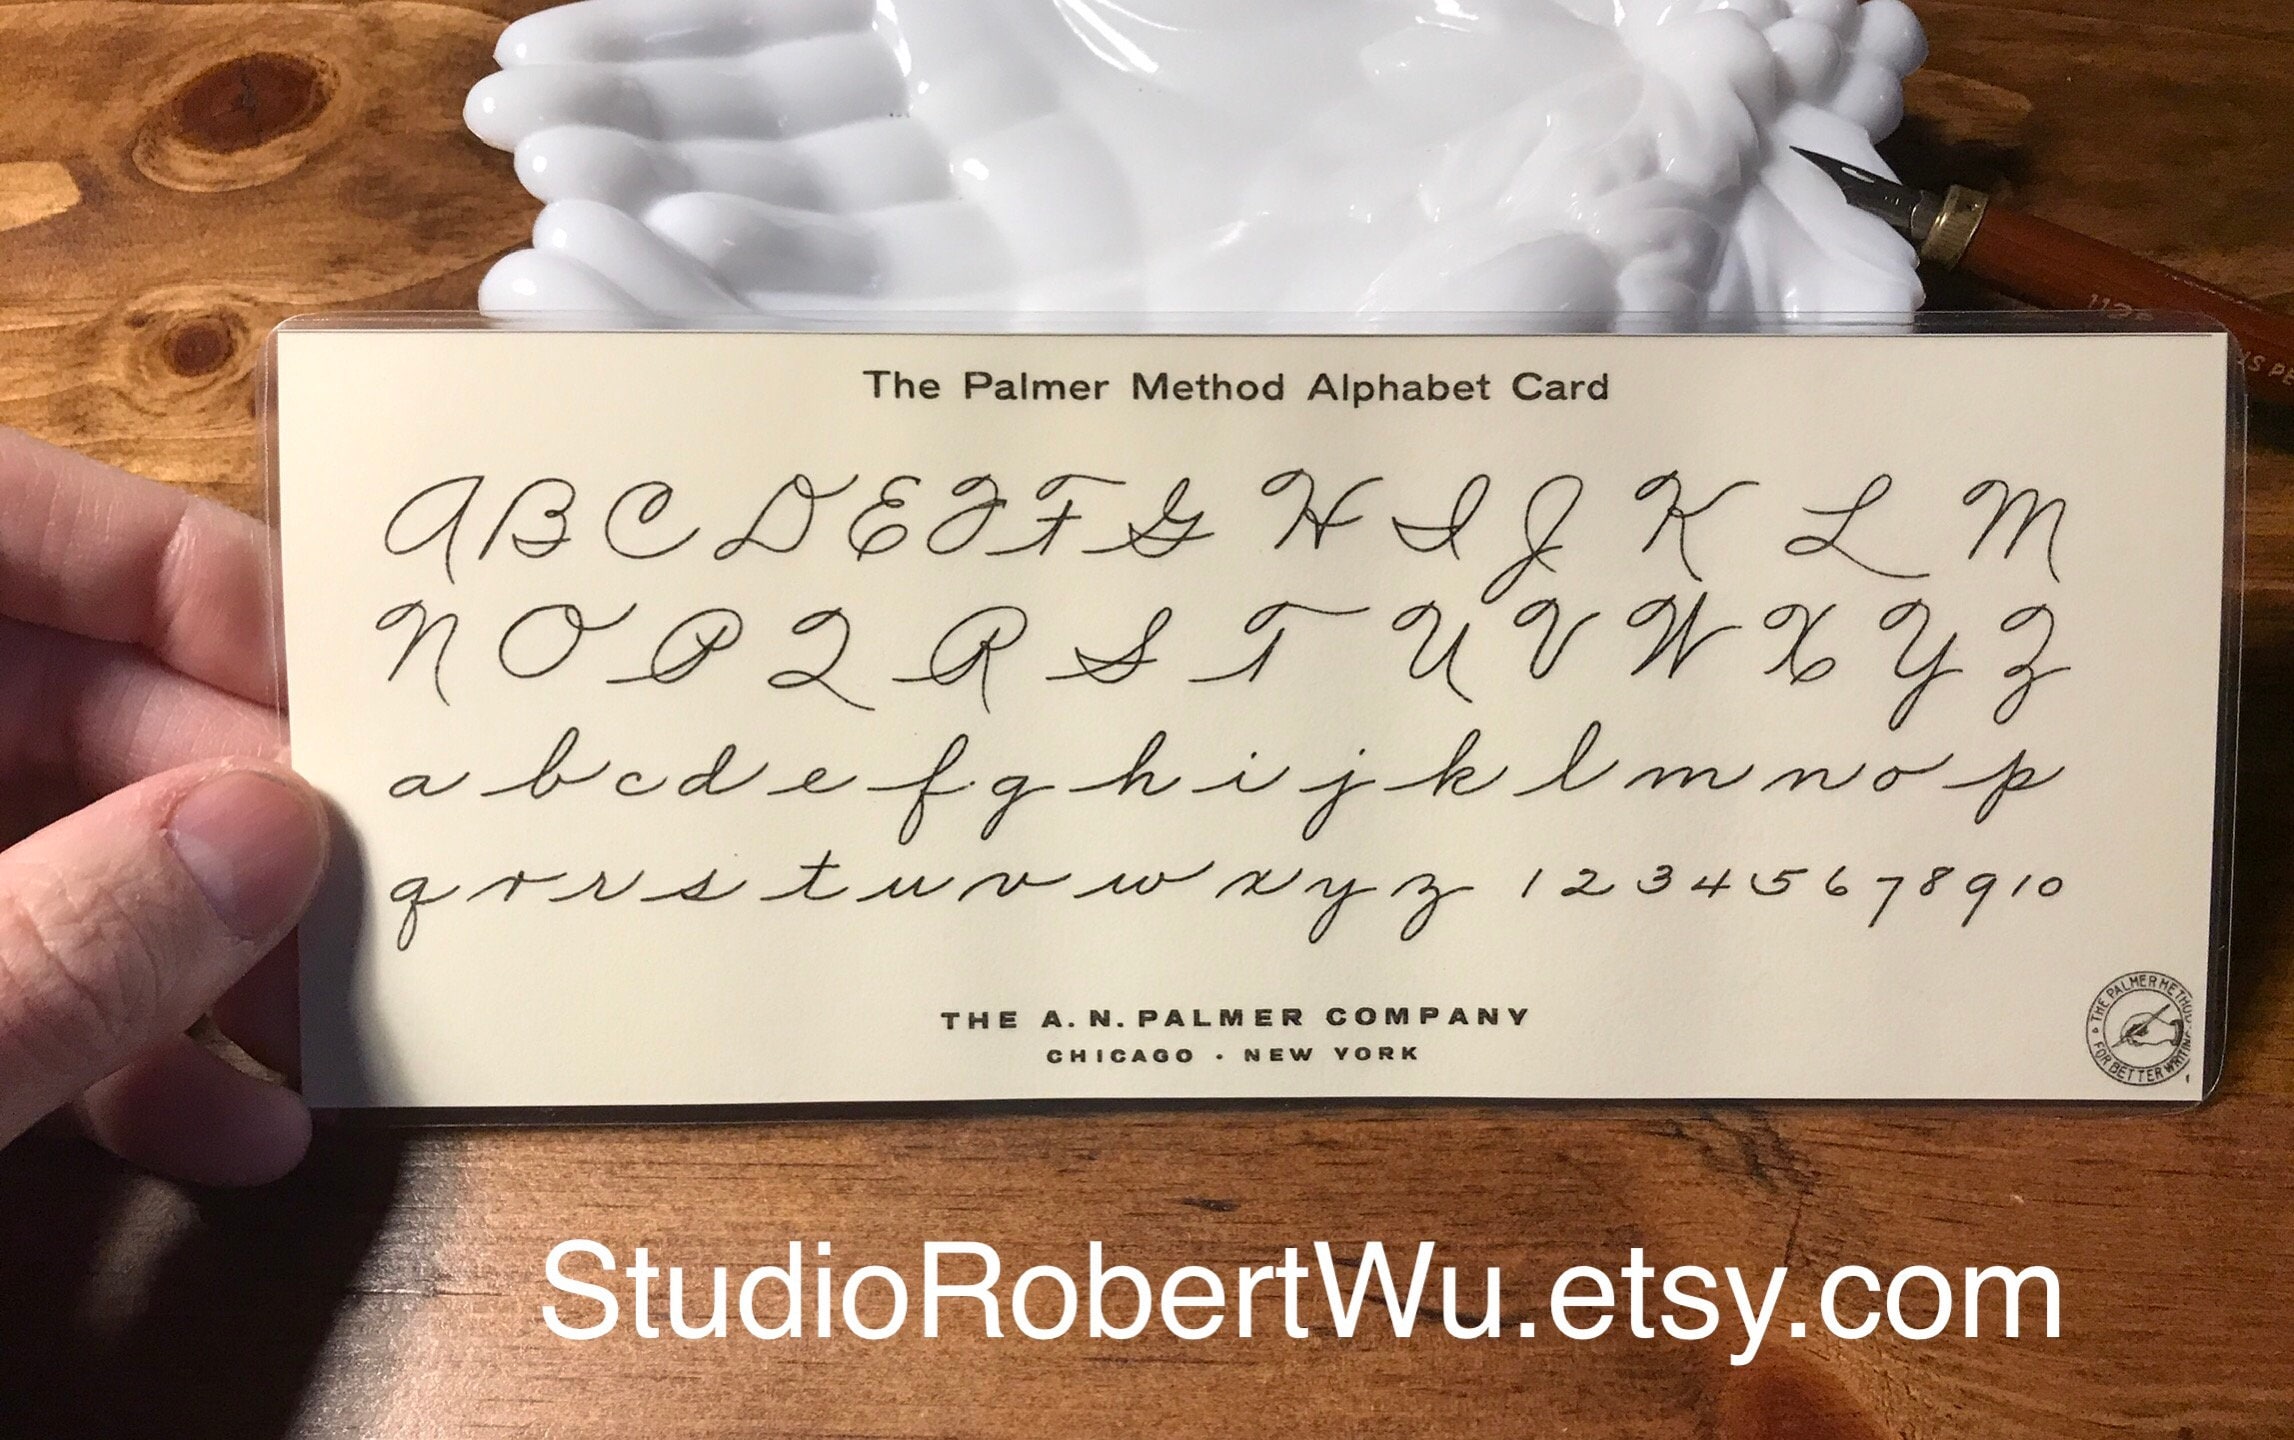 The Palmer Method Alphabet Card
A B C D E F F G H I J K L M
N O P Q R S T U V W X Y Z
a b c d e f g h i j k l m n o p
q r r s t u v w x y z 1 2 3 4 5 6 7 8 9 10
THE A. N. PALMER COMPANY
CHICAGO · NEW YORK
THE PALMER METHOD
FOR BETTER WRITING
StudioRobertWu.etsy.com